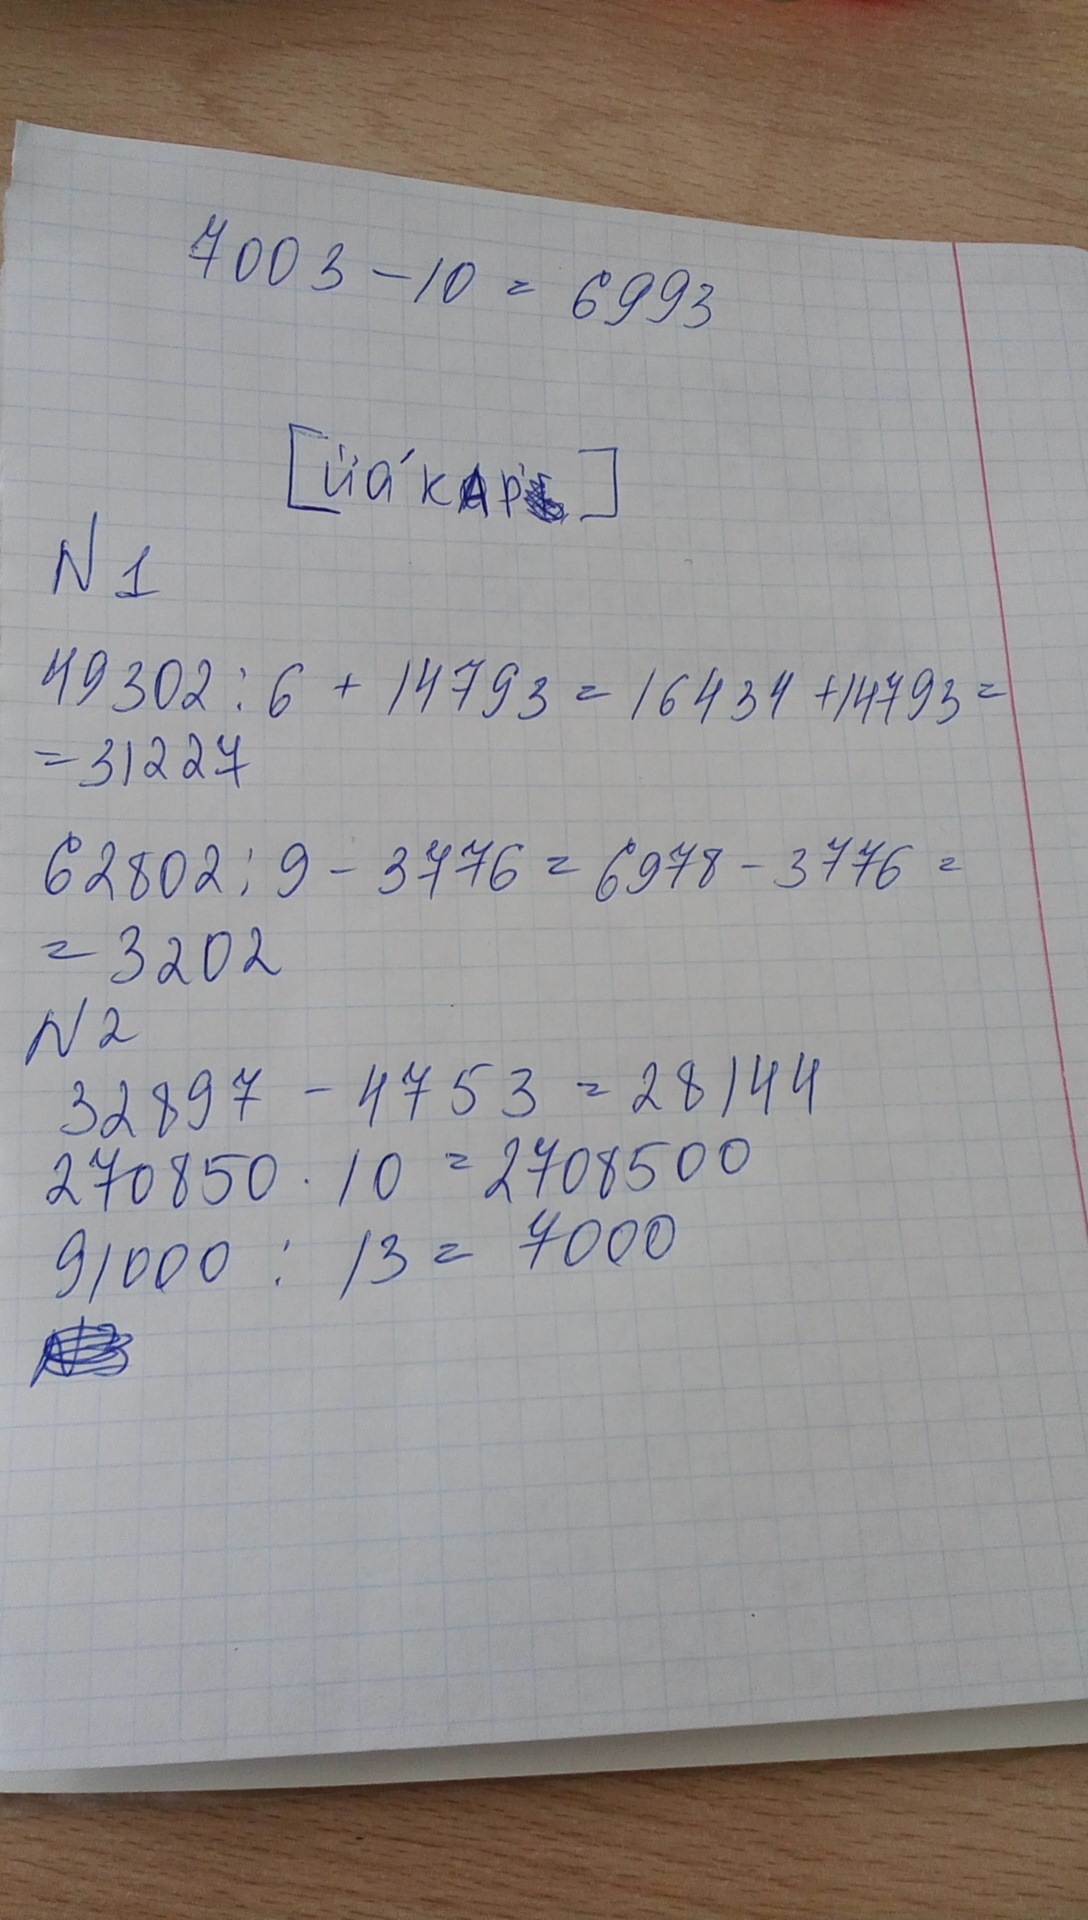 7003 - 10 = 6993
[йáкАр']
N 1
49302 : 6 + 14793 = 16434 + 14793 =
= 31227
62802 : 9 - 3776 = 6978 - 3776 =
= 3202
N 2
32897 - 4753 = 28144
270850 · 10 = 2708500
91000 : 13 = 7000